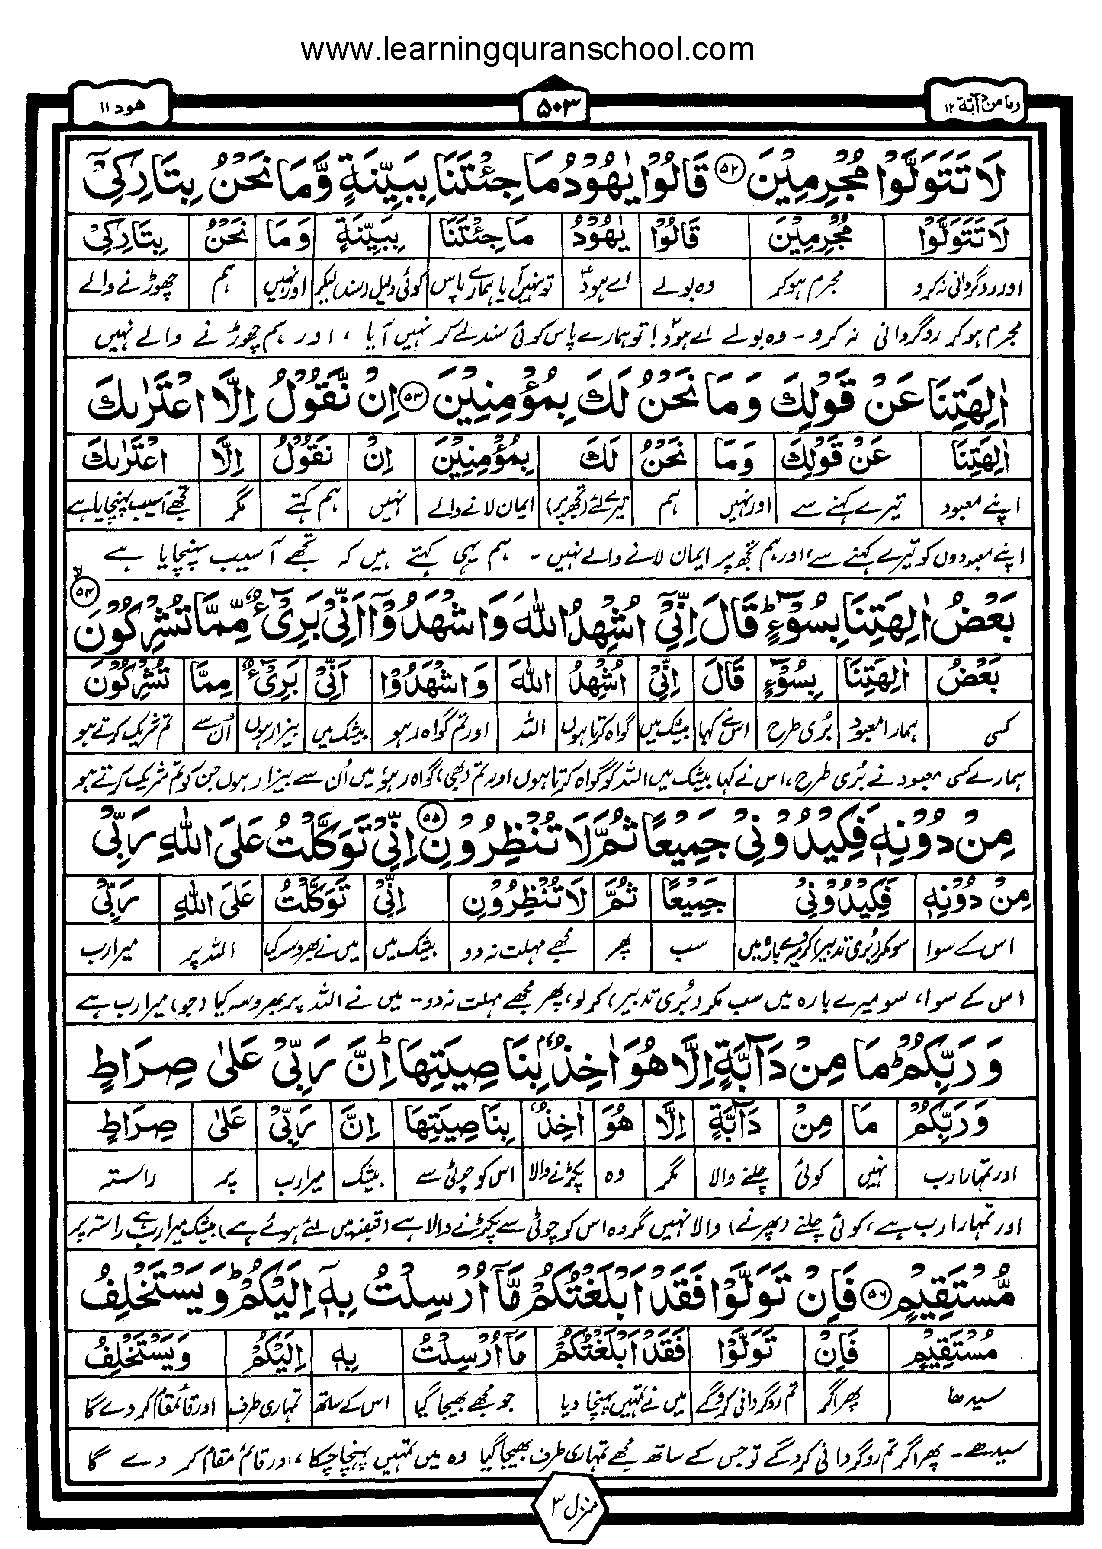 www.learningquranschool.com
وما من دآبة ۱۲
۵۰۳
هود ۱۱
لَا تَتَوَلَّوْا مُجْرِمِيْنَ ۵۲ قَالُوْا يٰهُوْدُ مَا جِئْتَنَا بِبَيِّنَةٍ وَّمَا نَحْنُ بِتَارِكِيْٓ
لَا تَتَوَلَّوْا مُجْرِمِيْنَ قَالُوْا يٰهُوْدُ مَا جِئْتَنَا بِبَيِّنَةٍ وَمَا نَحْنُ بِتَارِكِيْٓ
اور روگردانی نہ کرو مجرم ہو کر وہ بولے اے ہودؑ تو نہیں آیا ہمارے پاس کوئی دلیل (سند) لیکر اور نہیں ہم چھوڑنے والے
مجرم ہو کر روگردانی نہ کرو ۔ وہ بولے اے ہودؑ! تو ہمارے پاس کوئی سند لے کر نہیں آیا ، اور ہم چھوڑنے والے نہیں
اٰلِهَتِنَا عَنْ قَوْلِكَ وَمَا نَحْنُ لَكَ بِمُؤْمِنِيْنَ ۵۳ اِنْ نَّقُوْلُ اِلَّا اعْتَرٰىكَ
اٰلِهَتِنَا عَنْ قَوْلِكَ وَمَا نَحْنُ لَكَ بِمُؤْمِنِيْنَ اِنْ نَقُوْلُ اِلَّا اعْتَرٰىكَ
اپنے معبود تیرے کہنے سے اور نہیں ہم تیرے لئے (تجھ پر) ایمان لانے والے نہیں ہم کہتے مگر تجھے آسیب پہنچایا ہے
اپنے معبودوں کو تیرے کہنے سے، اور ہم تجھ پر ایمان لانے والے نہیں ۔ ہم یہی کہتے ہیں کہ تجھے آسیب پہنچایا ہے
بَعْضُ اٰلِهَتِنَا بِسُوْٓءٍ ؕ قَالَ اِنِّيْٓ اُشْهِدُ اللّٰهَ وَاشْهَدُوْٓا اَنِّيْ بَرِيْٓءٌ مِّمَّا تُشْرِكُوْنَ ۵۴ لا
بَعْضُ اٰلِهَتِنَا بِسُوْٓءٍ قَالَ اِنِّيْٓ اُشْهِدُ اللّٰهَ وَاشْهَدُوْٓا اَنِّيْ بَرِيْٓءٌ مِمَّا تُشْرِكُوْنَ
کسی ہمارا معبود بُری طرح اس نے کہا بیشک میں گواہ کرتا ہوں اللہ اور تم گواہ رہو بیشک میں بیزار ہوں اُن سے تم شریک کرتے ہو
ہمارے کسی معبود نے بُری طرح، اس نے کہا بیشک میں اللہ کو گواہ کرتا ہوں اور تم (بھی) گواہ رہو، میں اُن سے بیزار ہوں جن کو تم شریک کرتے ہو
مِنْ دُوْنِهٖ فَكِيْدُوْنِيْ جَمِيْعًا ثُمَّ لَا تُنْظِرُوْنِ ۵۵ اِنِّيْ تَوَكَّلْتُ عَلَى اللّٰهِ رَبِّيْ
مِنْ دُوْنِهٖ فَكِيْدُوْنِيْ جَمِيْعًا ثُمَّ لَا تُنْظِرُوْنِ اِنِّيْ تَوَكَّلْتُ عَلَى اللّٰهِ رَبِّيْ
اس کے سوا سو مکر (بُری تدبیر) کرو میرے بارہ میں سب پھر مجھے مہلت نہ دو بیشک میں میں نے بھروسہ کیا اللہ پر میرا رب
اس کے سوا، سو میرے بارہ میں سب مکر (بُری تدبیر) کر لو، پھر مجھے مہلت نہ دو ۔ میں نے اللہ پر بھروسہ کیا (جو) میرا رب ہے
وَرَبِّكُمْ ؕ مَا مِنْ دَآبَّةٍ اِلَّا هُوَ اٰخِذٌۢ بِنَاصِيَتِهَا ؕ اِنَّ رَبِّيْ عَلٰى صِرَاطٍ
وَرَبِّكُمْ مَا مِنْ دَآبَّةٍ اِلَّا هُوَ اٰخِذٌۢ بِنَاصِيَتِهَا اِنَّ رَبِّيْ عَلٰى صِرَاطٍ
اور تمہارا رب نہیں کوئی چلنے والا مگر وہ پکڑنے والا اس کو چوٹی سے بیشک میرا رب پر راستہ
اور تمہارا رب ہے ، کوئی چلنے (پھرنے) والا نہیں مگر وہ اس کو چوٹی سے پکڑنے والا ہے (قبضہ میں لئے ہوئے ہے) بیشک میرا رب ہے راستہ پر
مُّسْتَقِيْمٍ ۵۶ فَاِنْ تَوَلَّوْا فَقَدْ اَبْلَغْتُكُمْ مَّآ اُرْسِلْتُ بِهٖٓ اِلَيْكُمْ ؕ وَيَسْتَخْلِفُ
مُسْتَقِيْمٍ فَاِنْ تَوَلَّوْا فَقَدْ اَبْلَغْتُكُمْ مَآ اُرْسِلْتُ بِهٖ اِلَيْكُمْ وَيَسْتَخْلِفُ
سیدھا پھر اگر تم روگردانی کرو گے میں نے تمہیں پہنچا دیا جو مجھے بھیجا گیا اس کے ساتھ تمہاری طرف اور قائم مقام کر دے گا
سیدھے ۔ پھر اگر تم روگردانی کرو گے تو جس کے ساتھ مجھے تمہاری طرف بھیجا گیا وہ میں تمہیں پہنچا چکا ، اور قائم مقام کر دے گا
منزل ۳